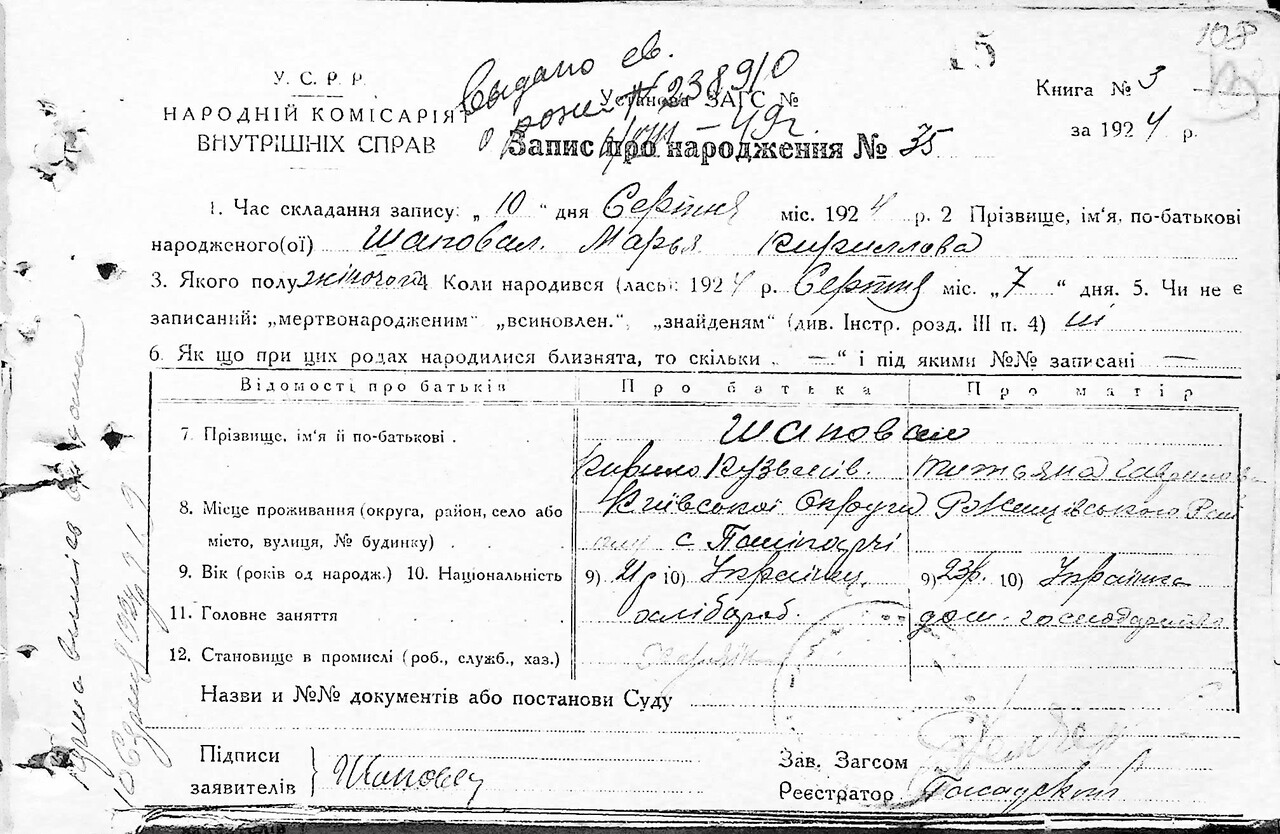 108
15
У. С. Р. Р.
НАРОДНІЙ КОМІСАРІЯТ
ВНУТРІШНІХ СПРАВ
Выдано св.
о рожд. № 238910
49г.
Установа ЗАГС №
Книга № 3
за 1924 р.
Запис про народження № 35
1. Час складання запису: „ 10 “ дня Серпня міс. 1924 р. 2 Прізвище, ім'я, по-батькові
народженого(ої) Шаповал Марья Кириллова
3. Якого полу жіночого Коли народився (лась): 1924 р. Серпня міс. „ 7 “ дня. 5. Чи не є
записаний: „мертвонародженим“ „всиновлен.“, „знайденям“ (див. Інстр. розд. III п. 4) ні
6. Як що при цих родах народилися близнята, то скільки „ — “ і під якими №№ записані —
Відомості про батьків Про батька Про матір
7. Прізвище, ім'я й по-батькові . Шаповал
Кирило Кузьмів. Титьяна
8. Місце проживання (округа, район, село або Київської Округи
місто, вулиця, № будинку) . . с
9. Вік (років од народж.) 10. Національність 9) 21р 10) Українец. 9) 23р. 10) Українка
11. Головне заняття хлібороб. дом. господарство
12. Становище в промислі (роб., служб., хаз.)
Назви и №№ документів або постанови Суду
Підписи
заявителів
Шаповал
Зав. Загсом
Реєстратор